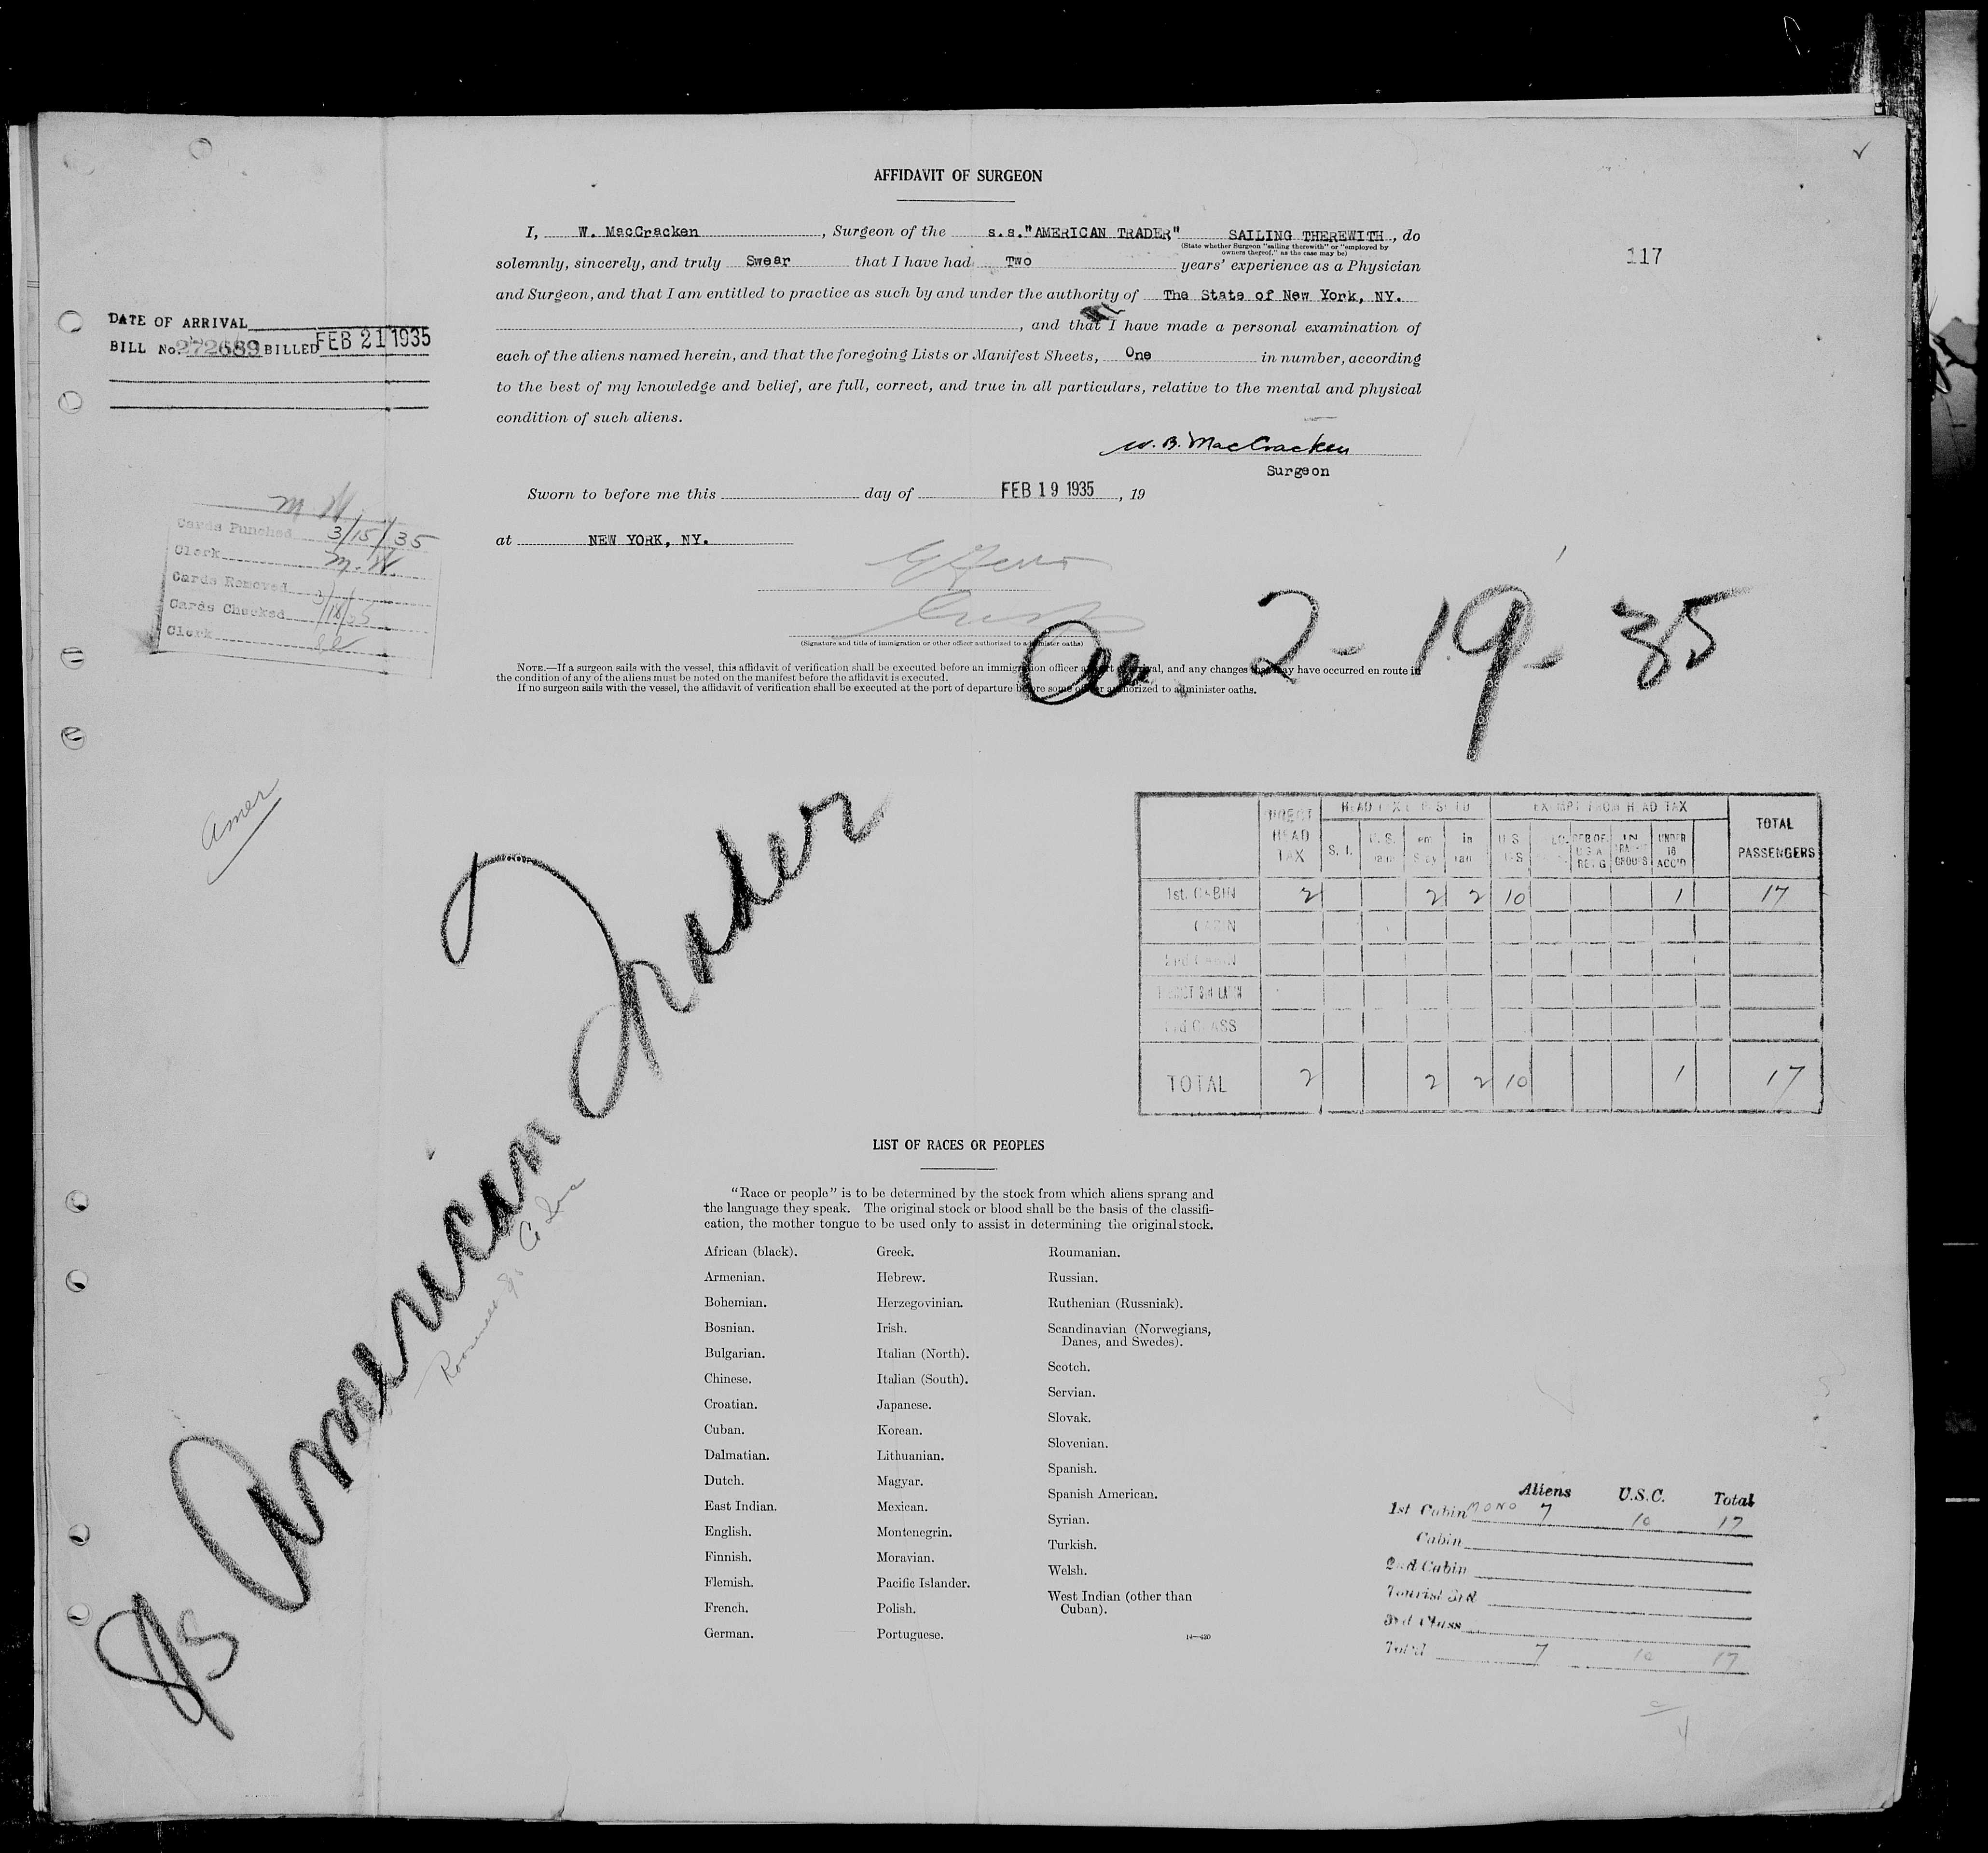 AFFIDAVIT OF SURGEON
117
I, W. MacCracken, Surgeon of the s.s."AMERICAN TRADER" SAILING THEREWITH, do
(State whether Surgeon "sailing therewith" or "employed by
owners thereof," as the case may be)
solemnly, sincerely, and truly Swear that I have had Two years' experience as a Physician
and Surgeon, and that I am entitled to practice as such by and under the authority of The State of New York, NY.
, and that I have made a personal examination of
each of the aliens named herein, and that the foregoing Lists or Manifest Sheets, One in number, according
to the best of my knowledge and belief, are full, correct, and true in all particulars, relative to the mental and physical
condition of such aliens.
W. B. MacCracken
Surgeon
Sworn to before me this day of FEB 19 1935, 19
at NEW YORK, NY.
(Signature and title of immigration or other officer authorized to administer oaths)
NOTE.—If a surgeon sails with the vessel, this affidavit of verification shall be executed before an immigration officer at port of arrival, and any changes that may have occurred en route in
the condition of any of the aliens must be noted on the manifest before the affidavit is executed.
If no surgeon sails with the vessel, the affidavit of verification shall be executed at the port of departure before some officer authorized to administer oaths.
2-19-35
DATE OF ARRIVAL
BILL No. 272689 BILLED FEB 21 1935
Cards Punched 3/15/35
Clerk M.W.
Cards Removed
Cards Checked 3/18/35
Clerk
Amer
S/s American Trader
DIRECT HEAD TAX
EXEMPT FROM HEAD TAX
TOTAL PASSENGERS
S. I.
UNDER 16 ACC'D
1st. CABIN 2 2 2 10 1 17
CABIN
2nd CABIN
3rd CLASS
TOTAL 2 2 2 10 1 17
LIST OF RACES OR PEOPLES
"Race or people" is to be determined by the stock from which aliens sprang and
the language they speak. The original stock or blood shall be the basis of the classifi-
cation, the mother tongue to be used only to assist in determining the original stock.
African (black).
Armenian.
Bohemian.
Bosnian.
Bulgarian.
Chinese.
Croatian.
Cuban.
Dalmatian.
Dutch.
East Indian.
English.
Finnish.
Flemish.
French.
German.
Greek.
Hebrew.
Herzegovinian.
Irish.
Italian (North).
Italian (South).
Japanese.
Korean.
Lithuanian.
Magyar.
Mexican.
Montenegrin.
Moravian.
Pacific Islander.
Polish.
Portuguese.
Roumanian.
Russian.
Ruthenian (Russniak).
Scandinavian (Norwegians,
Danes, and Swedes).
Scotch.
Servian.
Slovak.
Slovenian.
Spanish.
Spanish American.
Syrian.
Turkish.
Welsh.
West Indian (other than
Cuban).
14—430
Aliens U.S.C. Total
1st Cabin MONO 7 10 17
Cabin
2nd Cabin
Tourist 3rd
3rd Class
Total 7 10 17